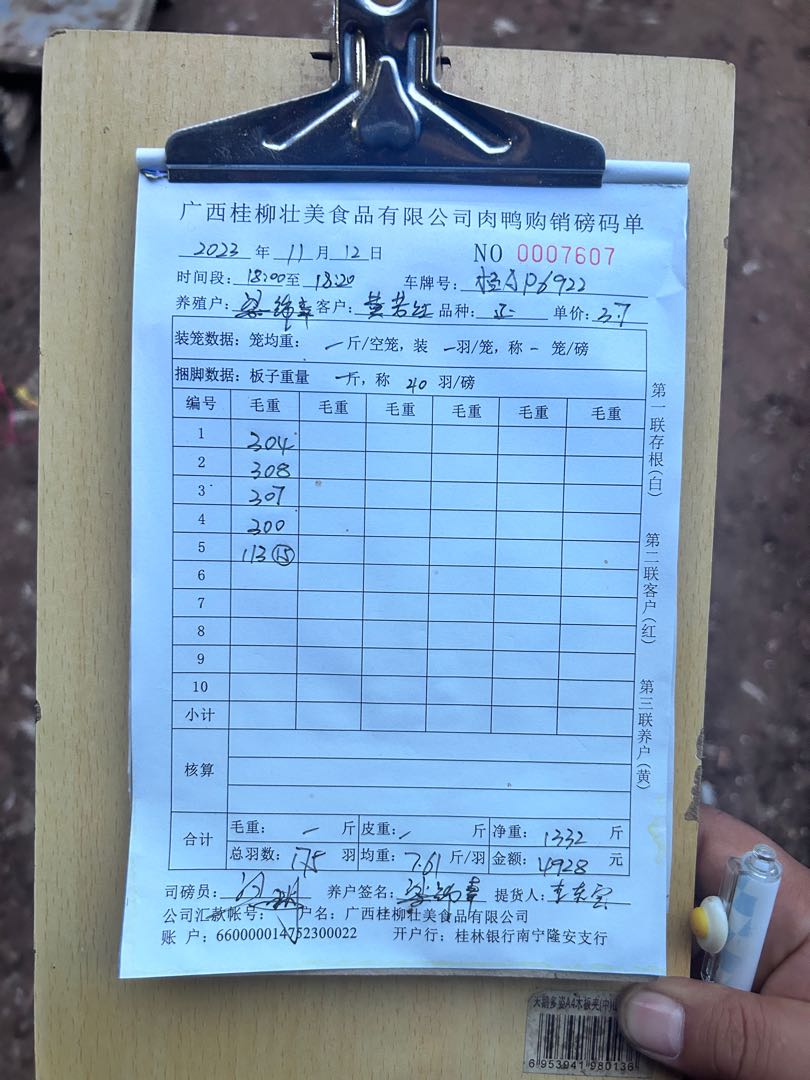 广西桂柳壮美食品有限公司肉鸭购销磅码单
2023 年 11 月 12 日 NO 0007607
时间段: 18:00 至 18:20 车牌号: P6922
养殖户: 客户: 黄 品种: 单价: 3.7
装笼数据: 笼均重: — 斤/空笼, 装 — 羽/笼, 称 — 笼/磅
捆脚数据: 板子重量 — 斤, 称 40 羽/磅
编号 毛重 毛重 毛重 毛重 毛重 毛重
1 304
2 308
3 307
4 300
5 113 ⑮
6
7
8
9
10
小计
核算
合计 毛重: — 斤 皮重: — 斤 净重: 1332 斤
总羽数: 175 羽 均重: 7.61 斤/羽 金额: 4928 元
司磅员: 养户签名: 提货人:
公司汇款帐号: 户名: 广西桂柳壮美食品有限公司
账 户: 660000014752300022 开户行: 桂林银行南宁隆安支行
第一联存根(白)
第二联客户(红)
第三联养户(黄)
6 953941 980136